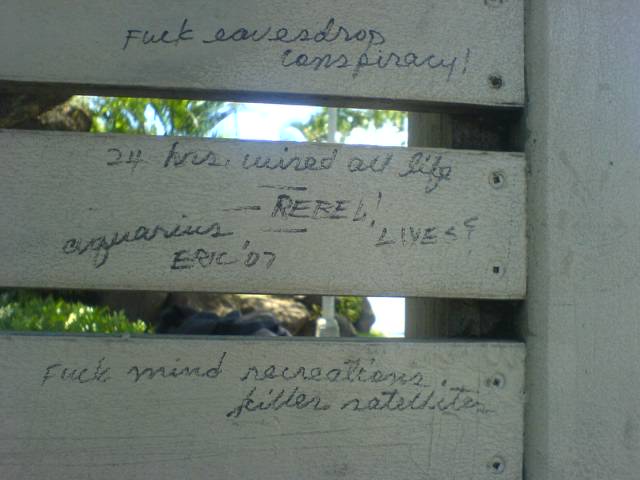 Fuck eavesdrop
conspiracy!
24 hrs. wired all life
REBEL!
LIVES
aquarius
ERIC '07
Fuck mind recreations.
killer satellite